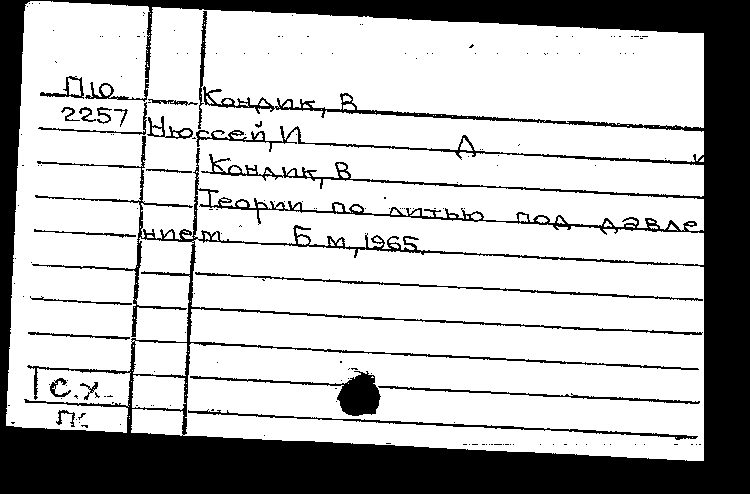 П10
Кондик, В
2257
Нюссей, И А и
Кондик, В
Теории по литью под давле
нием. Б м, 1965.
с.х
ПК